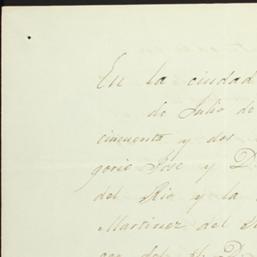 En la ciudad
de Julio de
cincuenta y dos
gorio José y D
del Rio y la
Martinez del